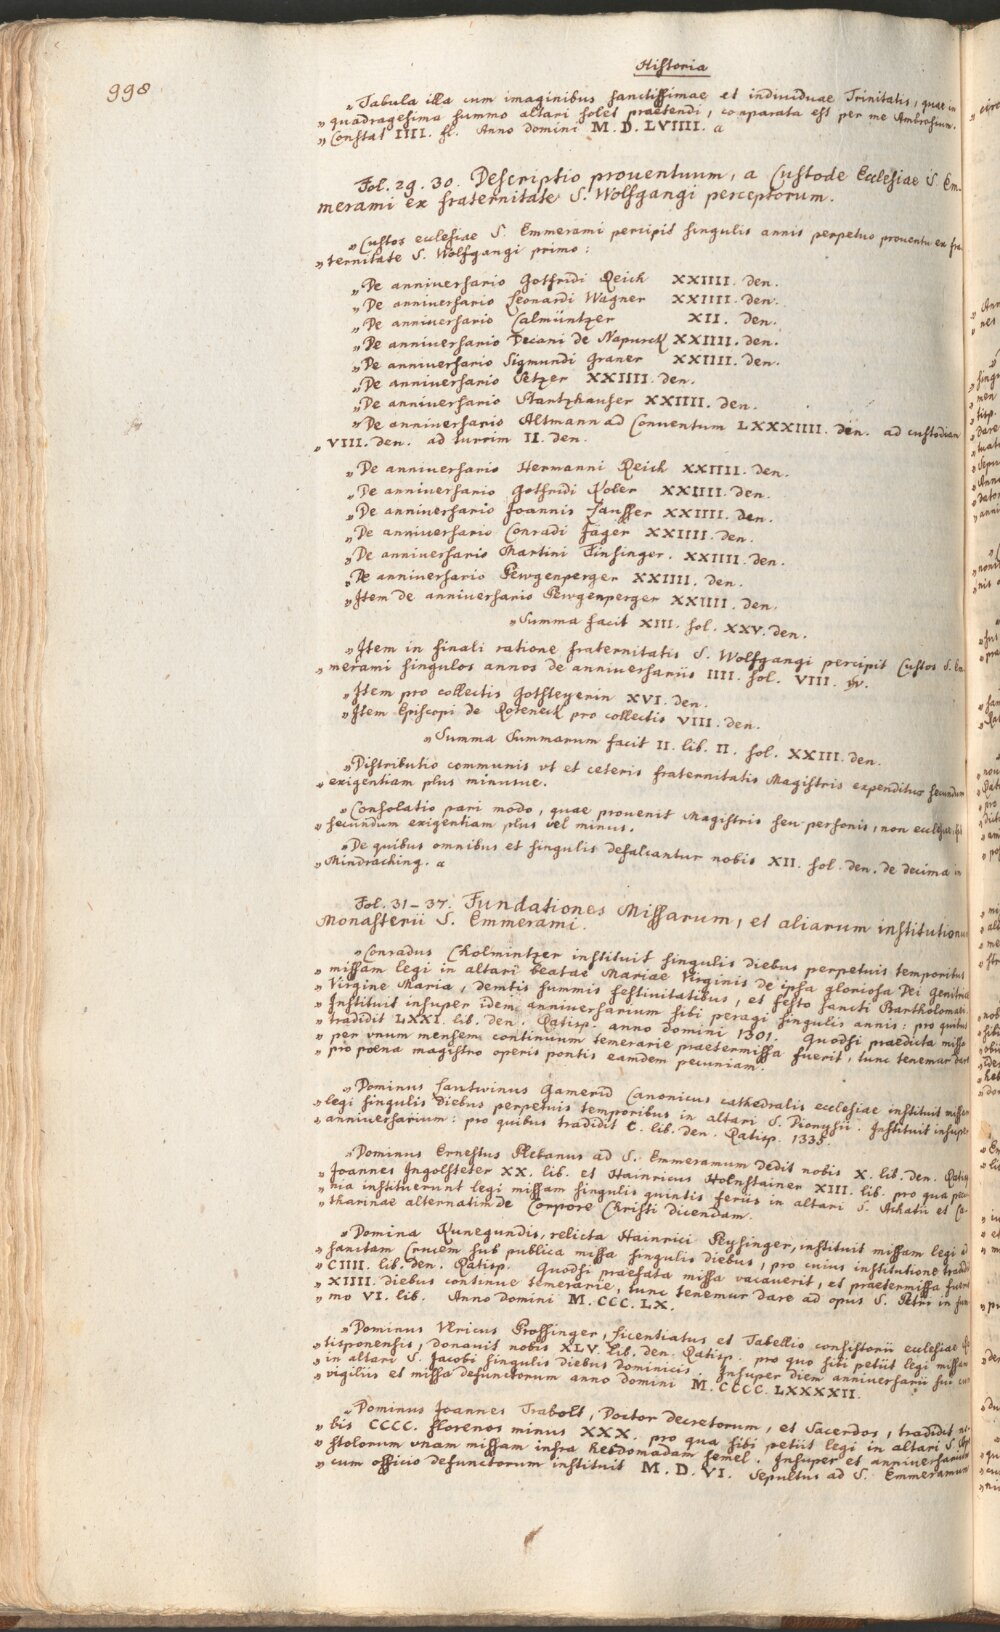 998
Historia
„Tabula illa cum imaginibus sanctissimae et individuae Trinitatis, quae in
„quadragesima summo altari solet praetendi, comparata est per me Ambrosium.
„Constat IIII. fl. Anno domini M. D. LVIIII. a
Fol. 29. 30. Descriptio prouentuum, a Custode Ecclesiae S. Em-
merami ex fraternitate S. Wolfgangi perceptorum.
„Custos ecclesiae S. Emmerami percipit singulis annis perpetuo prouentu ex fra-
„ternitate S. Wolfgangi primo:
„De anniuersario Gotfridi Reich XXIIII. den.
„De anniuersario Leonardi Wagner XXIIII. den.
„De anniuersario Calmüntzer XII. den.
„De anniuersario Decani de Napurck XXIIII. den.
„De anniuersario Sigmundi Graner XXIIII. den.
„De anniuersario Setzer XXIIII. den.
„De anniuersario Stantzhauser XXIIII. den.
„De anniuersario Altmann ad Conuentum LXXXIIII. den. ad custodiam
„VIII. den. ad turrim II. den.
„De anniuersario Hermanni Reich XXIIII. den.
„De anniuersario Gotfridi Koler XXIIII. den.
„De anniuersario Joannis Lauffer XXIIII. den.
„De anniuersario Conradi Jäger XXIIII. den.
„De anniuersario Martini Finsinger. XXIIII. den.
„De anniuersario Pewgenperger XXIIII. den.
„Item de anniuersario Pewgenperger XXIIII. den.
„Summa facit XIII. sol. XXV. den.
„Item in finali ratione fraternitatis S. Wolfgangi percipit Custos S. Em-
„merami singulos annos de anniuersariis IIII. sol. VIII.
„Item pro collectis Gothsteyerin XVI. den.
„Item Episcopi de Roreneck pro collectis VIII. den.
„Summa Summarum facit II. lib. II. sol. XXIII. den.
„Distributio communis vt et ceteris fraternitatis Magistris expenditur secundum
„exigentiam plus minusue.
„Consolatio pari modo, quae prouenit Magistris seu personis, non ecclesiae, sed
„secundum exigentiam plus vel minus.
„De quibus omnibus et singulis defalcantur nobis XII. sol. den. de decima in
„Mindraching. a
Fol. 31–37. Fundationes Missarum, et aliarum institutionum
Monasterii S. Emmerami.
„Conradus Cholmintzer instituit singulis diebus perpetuis temporibus
„missam legi in altari beatae Mariae Virginis de ipsa gloriosa Dei Genitrice
„Virgine Maria, demtis summis festiuitatibus, et festo sancti Bartholomaei.
„Instituit insuper idem anniuersarium sibi peragi singulis annis: pro quibus
„tradidit LXXI. lib. den. Ratisp. anno domini 1301. Quodsi praedicta missa
„per vnum mensem continuum temerarie praetermissa fuerit, tunc tenemur dare
„pro poena magistro operis pontis eamdem pecuniam.
„Dominus Lautwinus Gamerid Canonicus cathedralis ecclesiae instituit missam
„legi singulis diebus perpetuis temporibus in altari S. Dionysii. Instituit insuper
„anniuersarium: pro quibus tradidit C. lib. den. Ratisp. 1335.
„Dominus Ernestus Plebanus ad S. Emmeramum dedit nobis X. lib. den. Ratisp.
„Joannes Ingolsteter XX. lib. et Hainricus Holnstainer XIII. lib. pro qua pecu-
„nia instituerunt legi missam singulis quintis feriis in altari S. Achatii et Ca-
„tharinae alternatim de Corpore Christi dicendam.
„Domina Kunegundis, relicta Hainrici Reysinger, instituit missam legi ad
„sanctam Crucem sub publica missa singulis diebus, pro cuius institutione tradidit
„CIIII. lib. den. Ratisp. Quodsi praefata missa vacauerit, et praetermissa fuerit
„XIIII. diebus continue temerarie, tunc tenemur dare ad opus S. Petri in sum-
„mo VI. lib. Anno domini M. CCC. LX.
„Dominus Vlricus Prossinger, Licentiatus et Tabellio consistorii ecclesiae Ra-
„tisponensis, donauit nobis XLV. lib. den. Ratisp. pro quo sibi petiit legi missam
„in altari S. Jacobi singulis diebus dominicis. Insuper diem anniuersarii sui cum
„vigiliis et missa defunctorum anno domini M. CCCC. LXXXXII.
„Dominus Joannes Trabolt, Doctor decretorum, et Sacerdos, tradidit no-
„bis CCCC. florenos minus XXX. pro qua sibi petiit legi in altari S. Apo-
„stolorum vnam missam infra hebdomadam semel. Insuper et anniuersarium
„cum officio defunctorum instituit M. D. VI. Sepultus ad S. Emmeramum